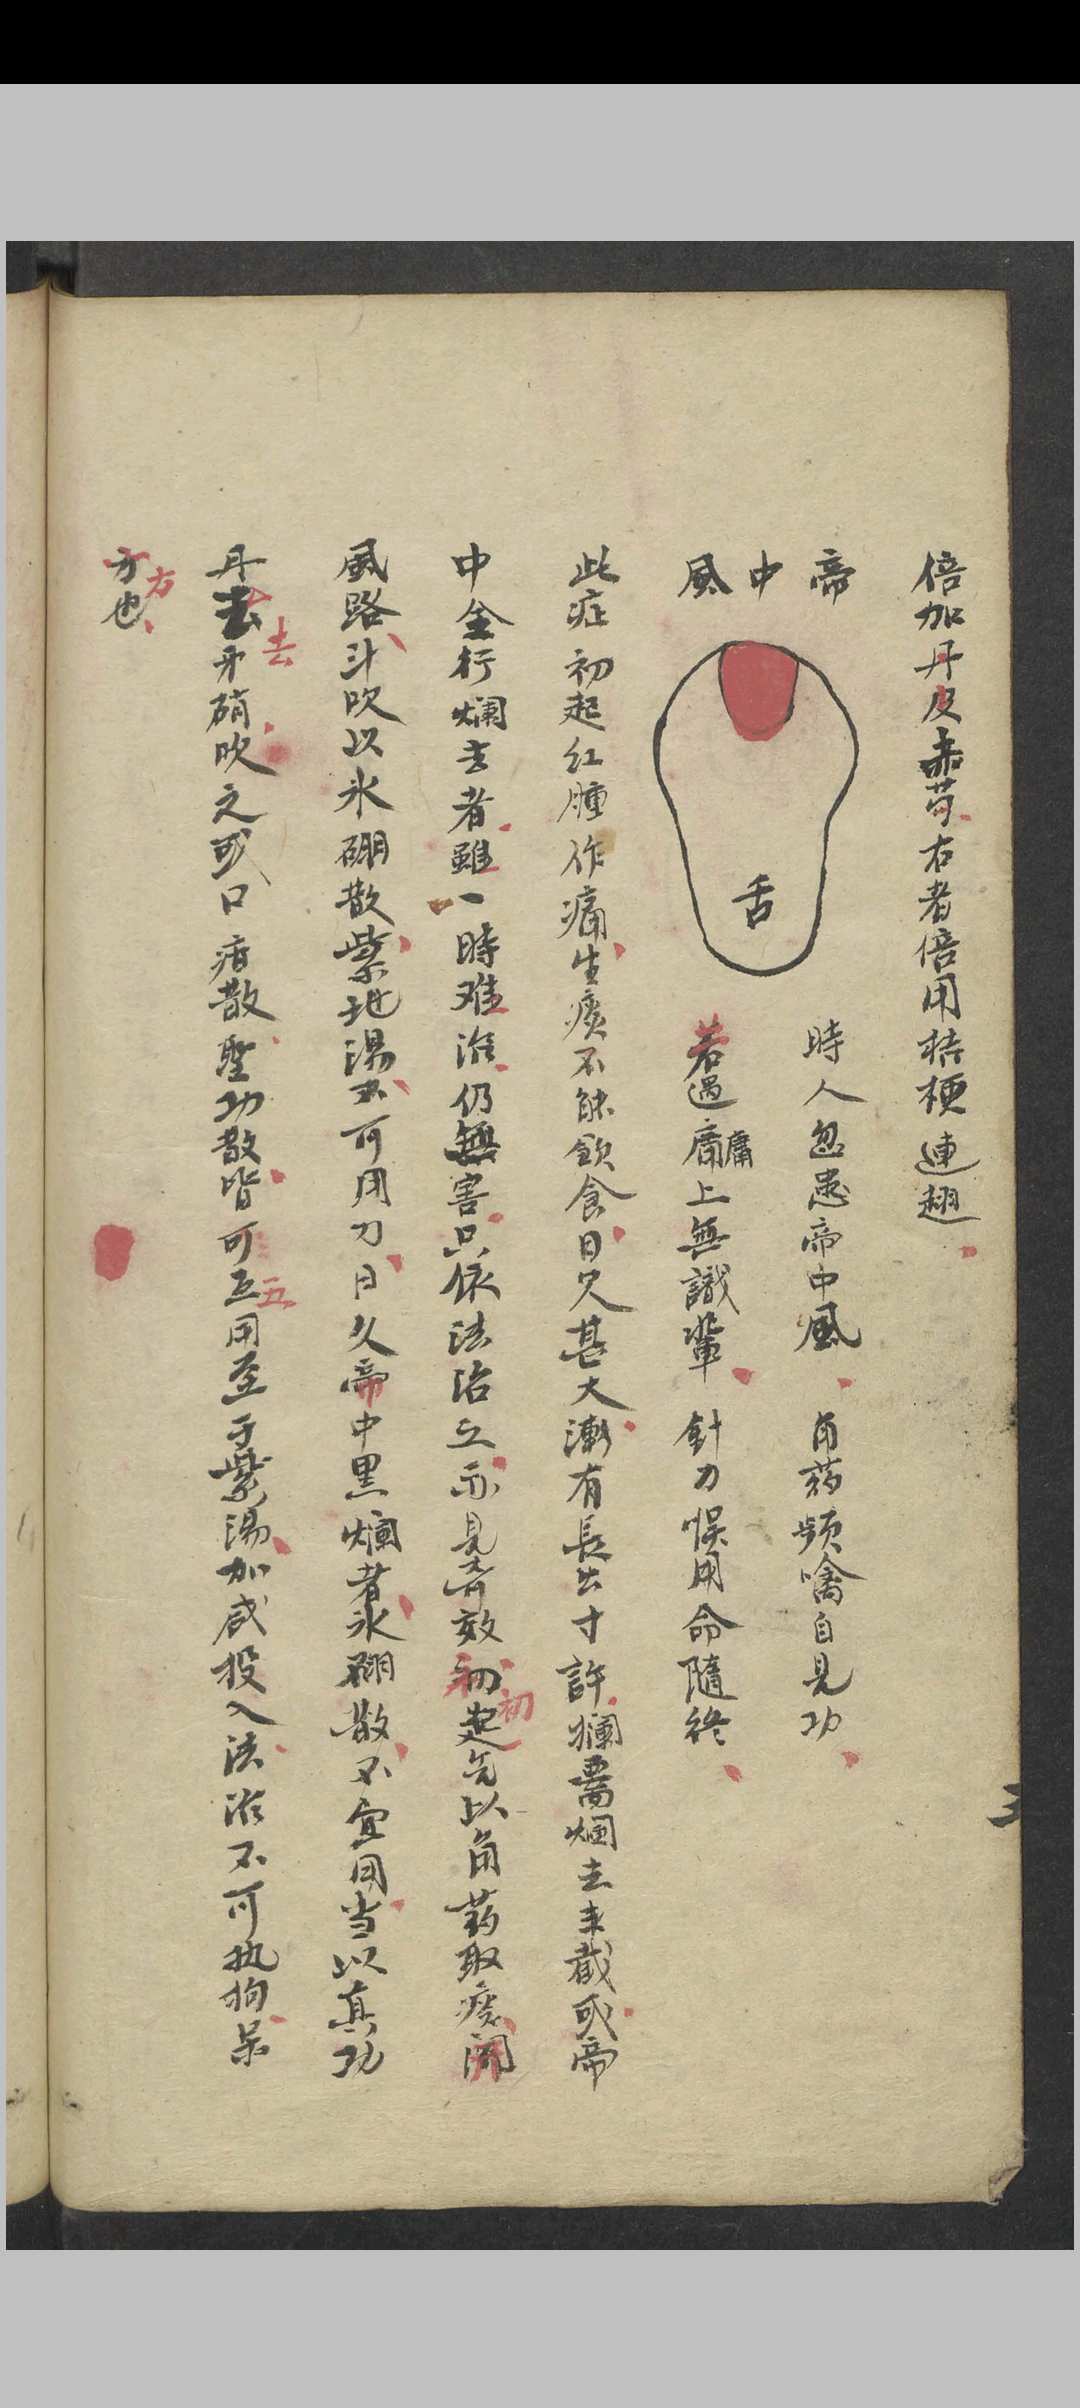 倍加丹皮赤芍右者倍用桔梗連翹
帝中風
舌
時人忽患帝中風 角葯頻噙自見功
若遇庸庸上無識輩 針刀悞用命隨終
此症初起紅腫作痛生痰不能飲食日久甚大漸有長出寸許爛 烟去半截或帝
中全行爛去者雖一時难治仍無害只依法治之亦見奇效初初起先以角葯取痰開
風路斗吹以氷硼散紫地湯不可用刀日久帝中黑爛者氷硼散不宜用当以真功
丹去去牙硝吹之或口疳散聖功散皆可互五用至于紫湯加咸投入法治不可执拘呆
方方也